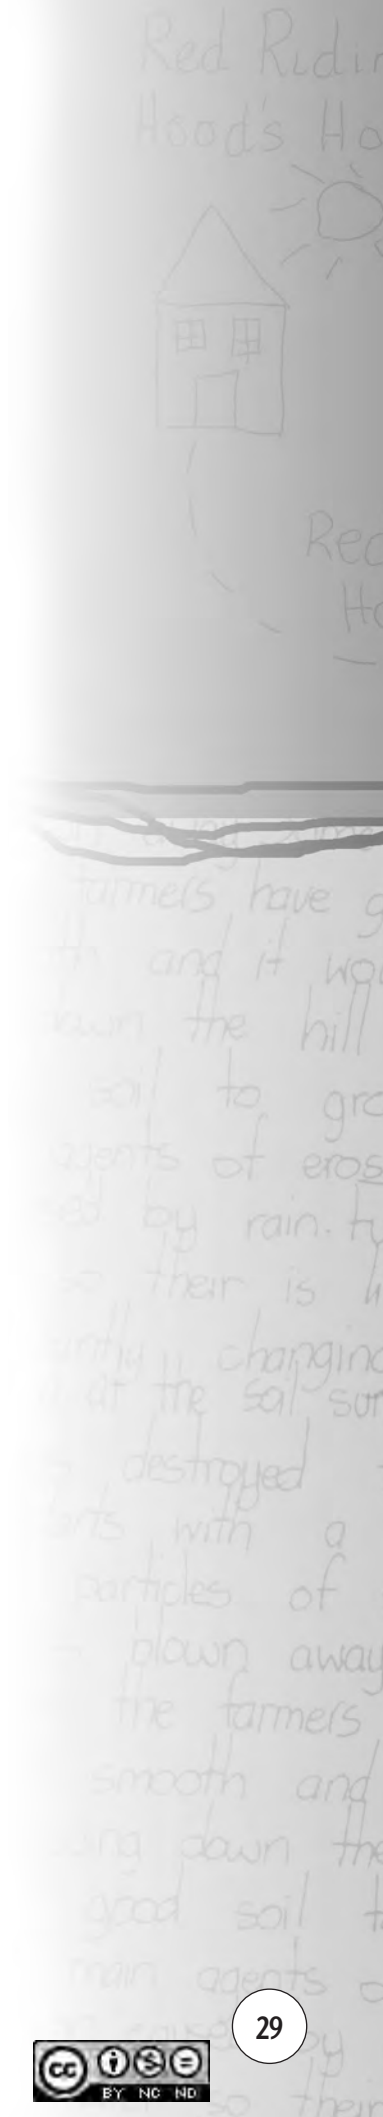 Red Ridin
Hood's Ho
Red
Ho
farmers have g
and it wou
down the hill
soil to gro
agents of eros
by rain. ty
so their is li
changing
at the soil sur
destroyed
with a
particles of
blown away
the farmers
smooth and
down the
good soil t
main agents o
29
by
so their
cc
BY NC ND